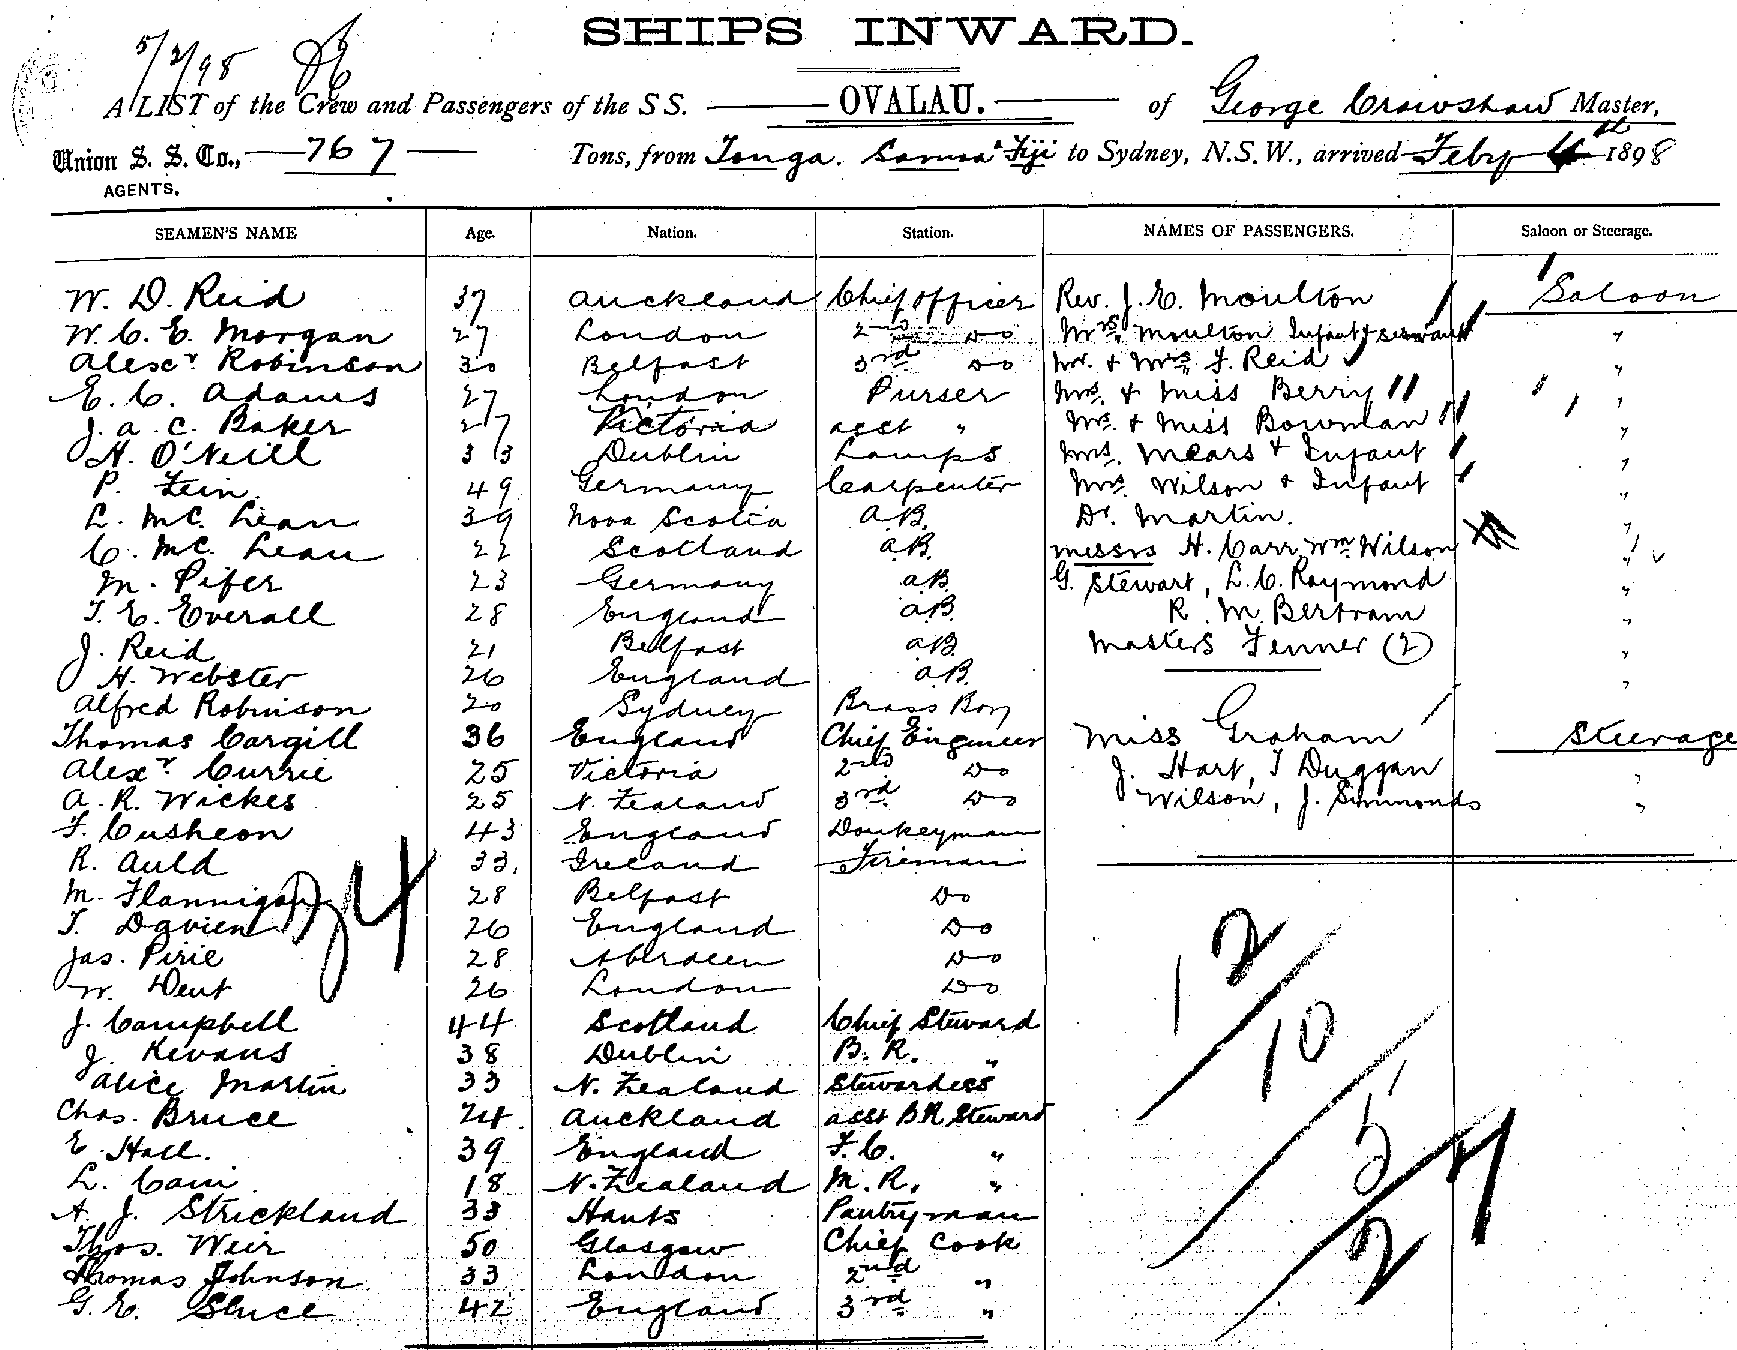 SHIPS INWARD.
5/2/98
A LIST of the Crew and Passengers of the S S. OVALAU. of George Crawshaw Master,
Union S. S. Co., 767 Tons, from Tonga. Samoa & Fiji to Sydney, N.S.W., arrived Feby 4th 1898
AGENTS.
SEAMEN'S NAME Age. Nation. Station. NAMES OF PASSENGERS. Saloon or Steerage.
W. D. Reid 37 Auckland Chief Officer Rev. J. E. Moulton Saloon
W. C. E. Morgan 27 London 2nd Do Mrs. Moulton Infant & servant "
Alexr Robinson 30 Belfast 3rd Do Mr. & Mrs. F. Reid "
E. C. Adams 27 London Purser Mrs. & Miss Berry "
J. A. C. Baker 27 Victoria Asst " Mrs. & Miss Bowman "
H. O'Neill 33 Dublin Lamps Mrs. Mears & Infant "
P. Fein 49 Germany Carpenter Mrs. Wilson & Infant "
L. McLean 39 Nova Scotia A.B. Dr. Martin. "
C. McLean 22 Scotland A.B. Messrs H. Carr, Wm Wilson "
M. Pifer 23 Germany A.B. G. Stewart, L. C. Raymond "
T. E. Everall 28 England A.B. R. M. Bertram "
J. Reid 21 Belfast A.B. Masters Fenner (2) "
H. Webster 26 England A.B. "
Alfred Robinson 20 Sydney Brass Boy
Thomas Cargill 36 England Chief Engineer Miss Graham Steerage
Alexr Currie 25 Victoria 2nd Do J. Hart, T Duggan "
A. R. Wickes 25 N. Zealand 3rd Do Wilson, J. Simmonds "
F. Cusheon 43 England Donkeyman
R. Auld 33 Ireland Fireman
M. Flannigan 28 Belfast Do
T. Davien 26 England Do
Jas. Pirie 28 Aberdeen Do
W. Dent 26 London Do
J. Campbell 44 Scotland Chief Steward
J. Kevans 38 Dublin B. R. "
Alice Martin 33 N. Zealand Stewardess
Chas. Bruce 24 Auckland Asst B.R. Steward
E. Hall. 39 England F.C. "
L. Cain 18 N. Zealand M.R. "
A. J. Strickland 33 Hants Pantryman
Thos. Weir 50 Glasgow Chief Cook
Thomas Johnson 33 London 2nd "
G. E. Sluce 42 England 3rd "
12/10/5/2